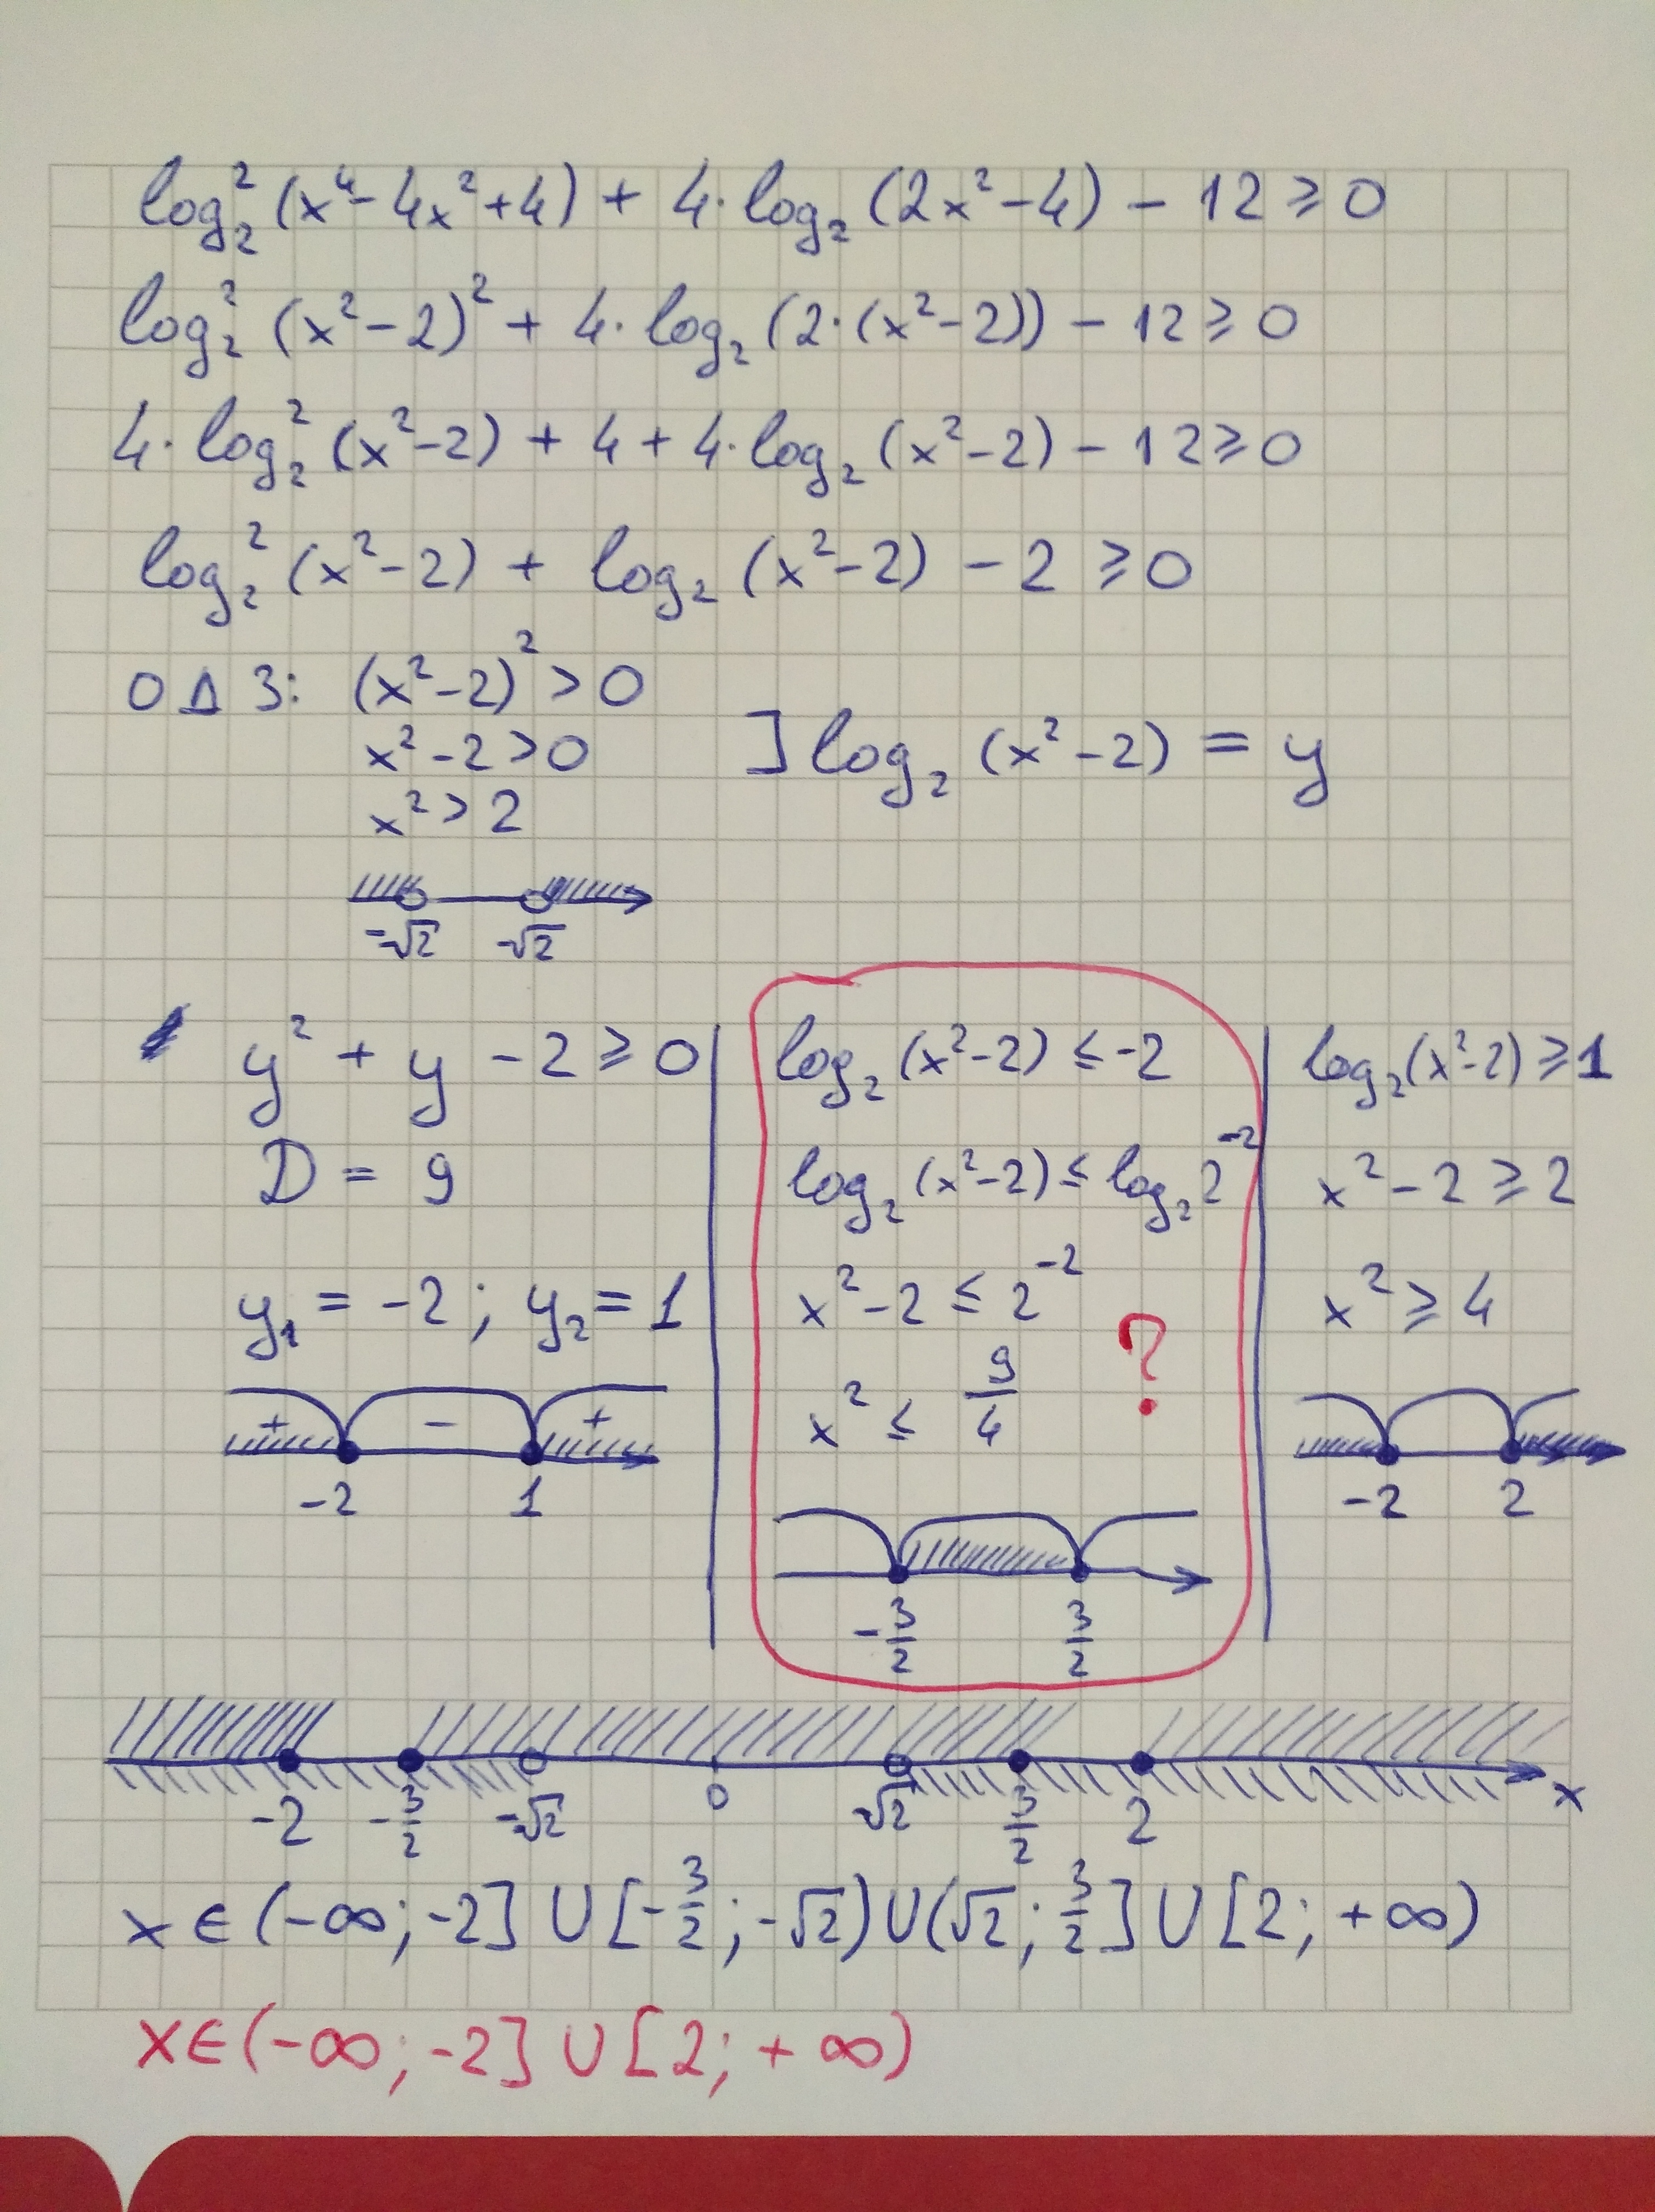 log₂² (x⁴ - 4x² + 4) + 4 · log₂ (2x² - 4) - 12 ≥ 0
log₂² (x² - 2)² + 4 · log₂ (2 · (x² - 2)) - 12 ≥ 0
4 · log₂² (x² - 2) + 4 + 4 · log₂ (x² - 2) - 12 ≥ 0
log₂² (x² - 2) + log₂ (x² - 2) - 2 ≥ 0
ОДЗ: (x² - 2)² > 0
x² - 2 > 0
x² > 2
-√2 √2
] log₂ (x² - 2) = y
y² + y - 2 ≥ 0
D = 9
y₁ = -2 ; y₂ = 1
+ - +
-2 1
log₂ (x² - 2) ≤ -2
log₂ (x² - 2) ≤ log₂ 2⁻²
x² - 2 ≤ 2⁻²
x² ≤ 9/4
?
-3/2 3/2
log₂ (x² - 2) ≥ 1
x² - 2 ≥ 2
x² ≥ 4
-2 2
-2 -3/2 -√2 0 √2 3/2 2 x
x ∈ (-∞; -2] ∪ [-3/2; -√2) ∪ (√2; 3/2] ∪ [2; +∞)
x ∈ (-∞; -2] ∪ [2; +∞)